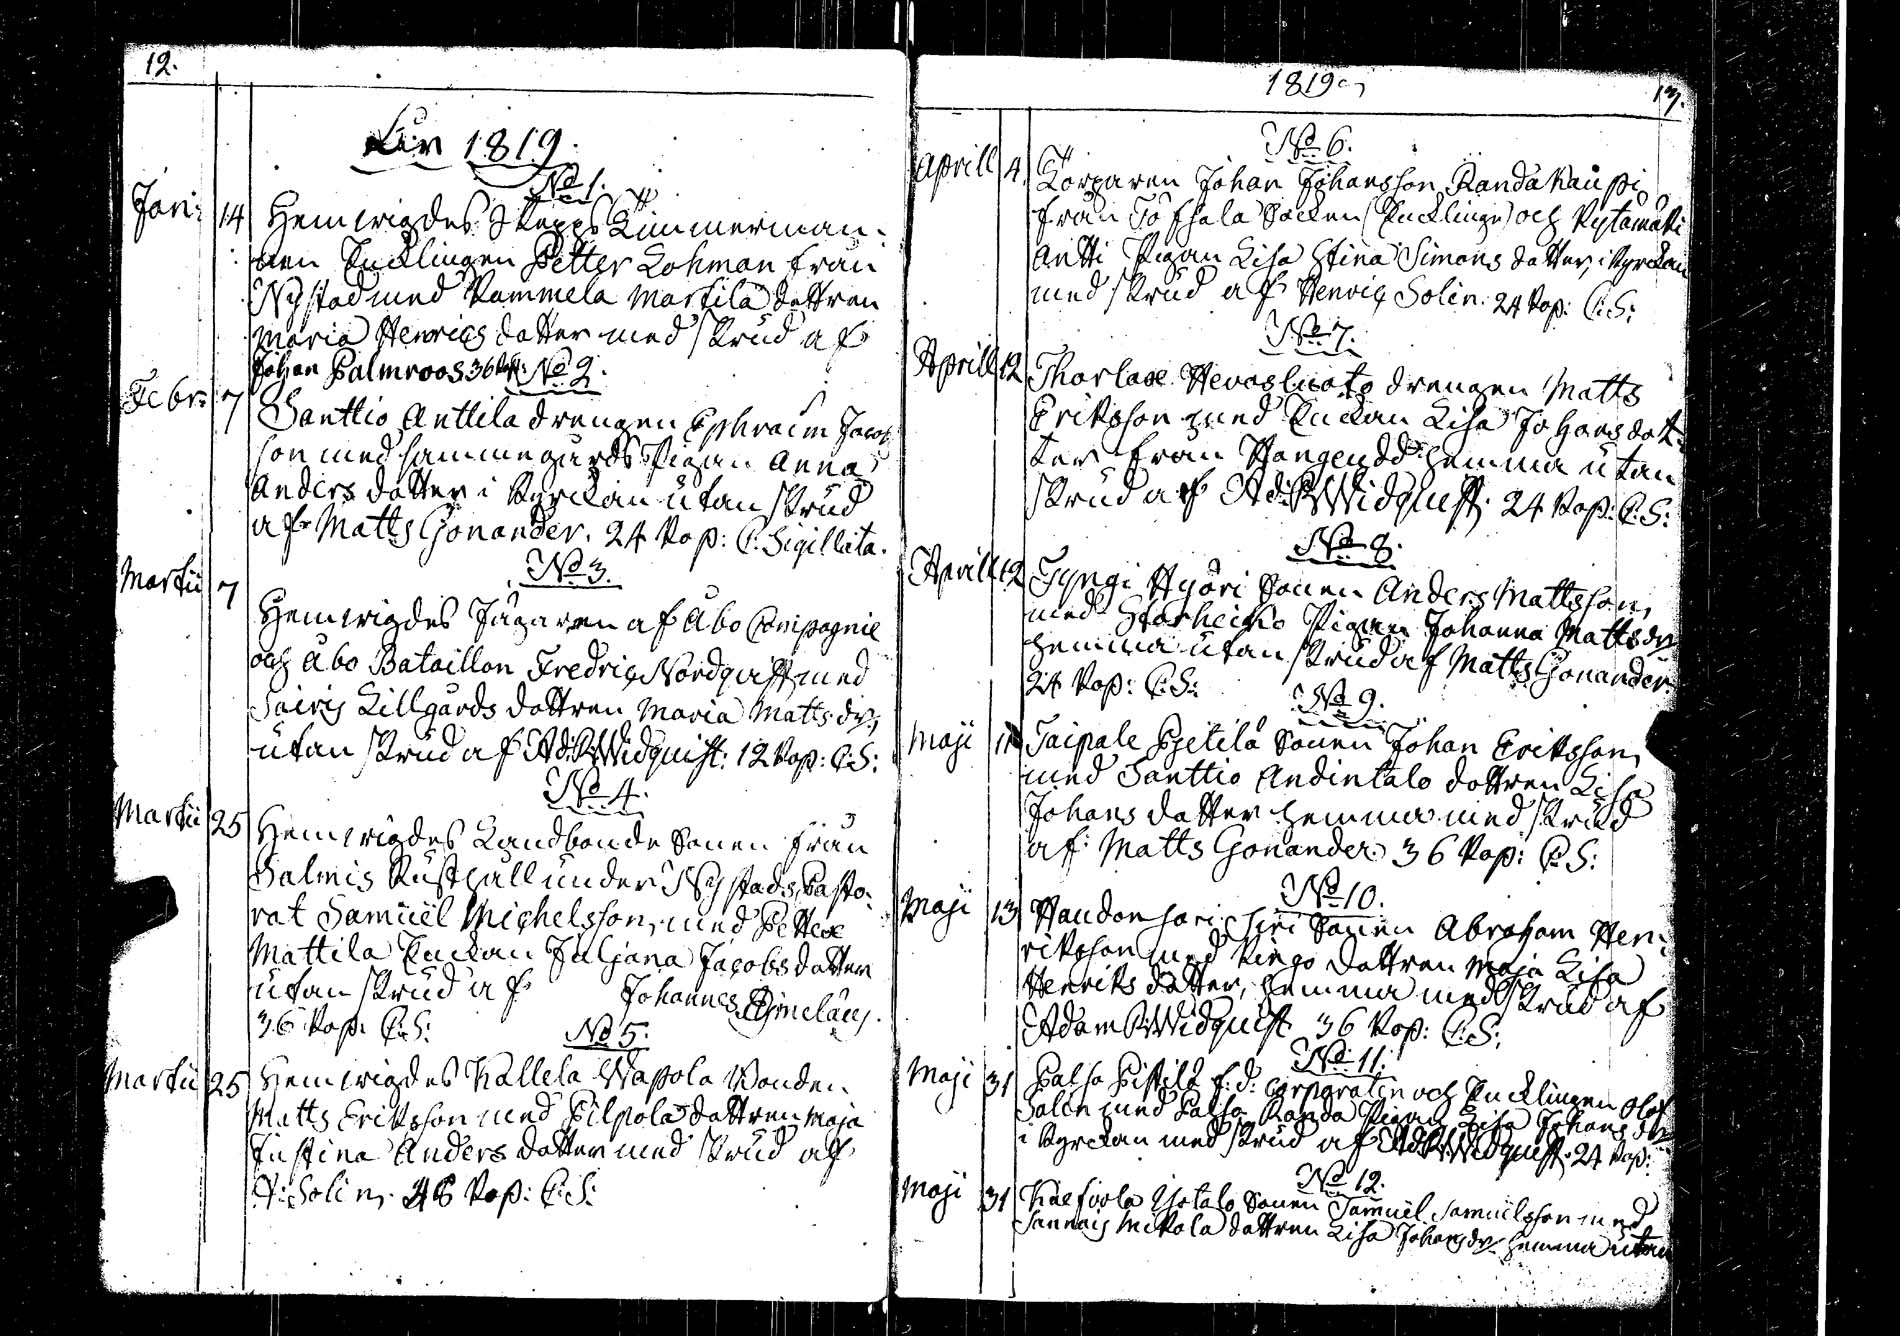 12.
År 1819.
No 1.
Jan: 14 Hemvigdes Skepps Timmerman-
nen Encklingen Petter Lohman från
Nystad med Rammela Martila dottren
Maria Henrics dotter med skrud af
Johan Palmroos 36 kop: No 2.
Febr: 7 Santtio Anttila drengen Ephraim Jacob
son med samme gårds Pigan Anna
Anders dotter i Kyrckan utan skrud
af Matts Gonander. 24 kop: C: Sigillata.
No 3.
Martii 7 Hemvigdes Jägaren af Åbo Compagnie
och Åbo Bataillon Fredric Nordqvist med
Sairis Lillgårds dottren Maria Matts dr,
utan skrud af Ad: R: Widquist: 12 kop: C: S:
No 4.
Martii 25 Hemvigdes Landbonde Sonen från
Salmis Rusthall under Nystads Pasto-
rat Samuel Michelsson, med
Mattila Enckan Juljana Jacobs dotter
utan skrud af Johannes
36 kop: C: S: No 5.
Martii 25 Hemvigdes Kallela Wapola Bonden
Matts Eriksson med Pilpola dottren Maja
Justina Anders dotter med skrud af
H: Solin. 48 kop: C: S:
1819
13.
No 6.
Aprill 4 Torparen Johan Johansson Randa Kauppi
från Töfsala Socken (Encklinge) och Kytämäki
Antti Pigan Lisa Stina Simons dotter, i Kyrckan
med skrud af Henric Solin. 24 kop: C: S:
No 7.
Aprill 12 Thorlax Hevosluoto drengen Matts
Eriksson med Enckan Lisa Johans dot-
ter från hemma utan
skrud af Ad: R: Widquist. 24 kop: C: S:
No 8.
Aprill 12 Tyngi Hyöri Sonen Anders Mattsson,
med Pigan Johanna Matts dr
hemma utan skrud af Matts Gonander.
24 kop: C: S: No 9.
Maji Taipale Pietilä Sonen Johan Eriksson,
med Santtio Andintalo dottren Lisa
Johans dotter hemma med skrud
af: Matts Gonander. 36 kop: C: S:
No 10.
Maji 13 Haudonsari Siri Sonen Abraham Hen-
riksson med Ringo dottren Maja Lisa
Henriks dotter, hemma med skrud af
Adam R: Widquist 36 kop: C: S:
No 11:
Maji 31 Palsa f: d: Corporalen och Encklingen Olof
Salin med Palsa Randa Pigan Lisa Johans dr
i Kyrckan med skrud af Ad: R: Widquist. 24 kop:
No 12.
Maji 31 Yotalo Sonen Samuel Samuelsson med
Sannais Mikola dottren Lisa Johans dr hemma utan